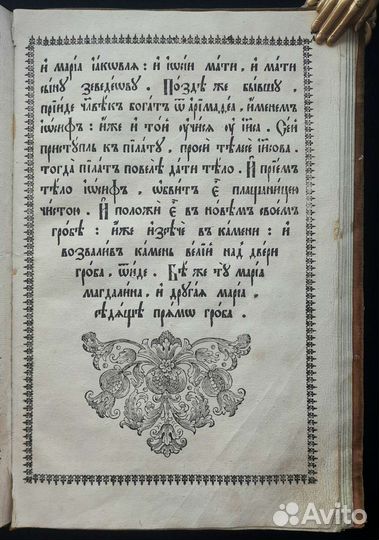 и҆ марі́а і҆а́кѡвлѧ : и҆ і҆ѡсі́и ма́ти , и҆ ма́ти
сы́нꙋ зеведе́ѡвꙋ . По́здѣ же бы́вшꙋ ,
прїи́де чл҃вѣ́къ бога́тъ ѿ а҆рїмаде́а , и҆́менемъ
і҆ѡ́сифъ : и҆́же и҆ то́й ᲂу҆чи́сѧ ᲂу҆ і҆и҃са . Се́й
пристꙋ́пль къ пїла́тꙋ , проси́ тѣлесѐ і҆и҃сова .
тогда̀ пїла́тъ повелѣ̀ да́ти тѣ́ло . И҆ прїе́мъ
тѣ́ло і҆ѡ́сифъ , ѡ҆бви́тъ є҆̀ плащани́цею
чи́стою . И҆ положѝ є҆̀ в но́вѣмъ свое́мъ
гро́бѣ : и҆́же и҆зсѣчѐ в ка́мени : и҆
возвали́въ ка́мень ве́лїй над две́ри
гро́ба , ѿи́де . Бѣ́ же тꙋ̀ марі́а
магдали́на , и҆ дрꙋга́ѧ марі́а ,
сѣдѧ́щѣ прѧ́мѡ гро́ба .
Avito